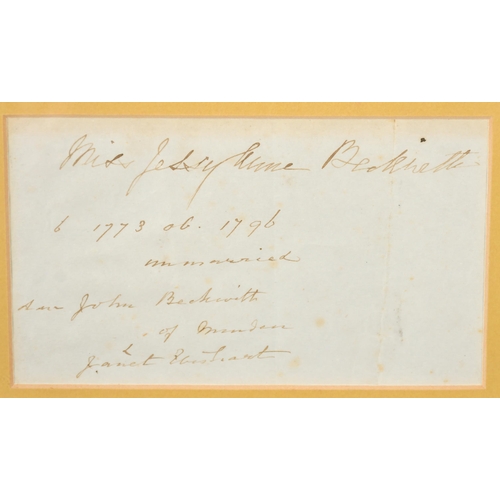 Miss Jessy Anne Beckwith
b 1773 ob. 1796
unmarried
John Beckwith
of Minden
&
Janet